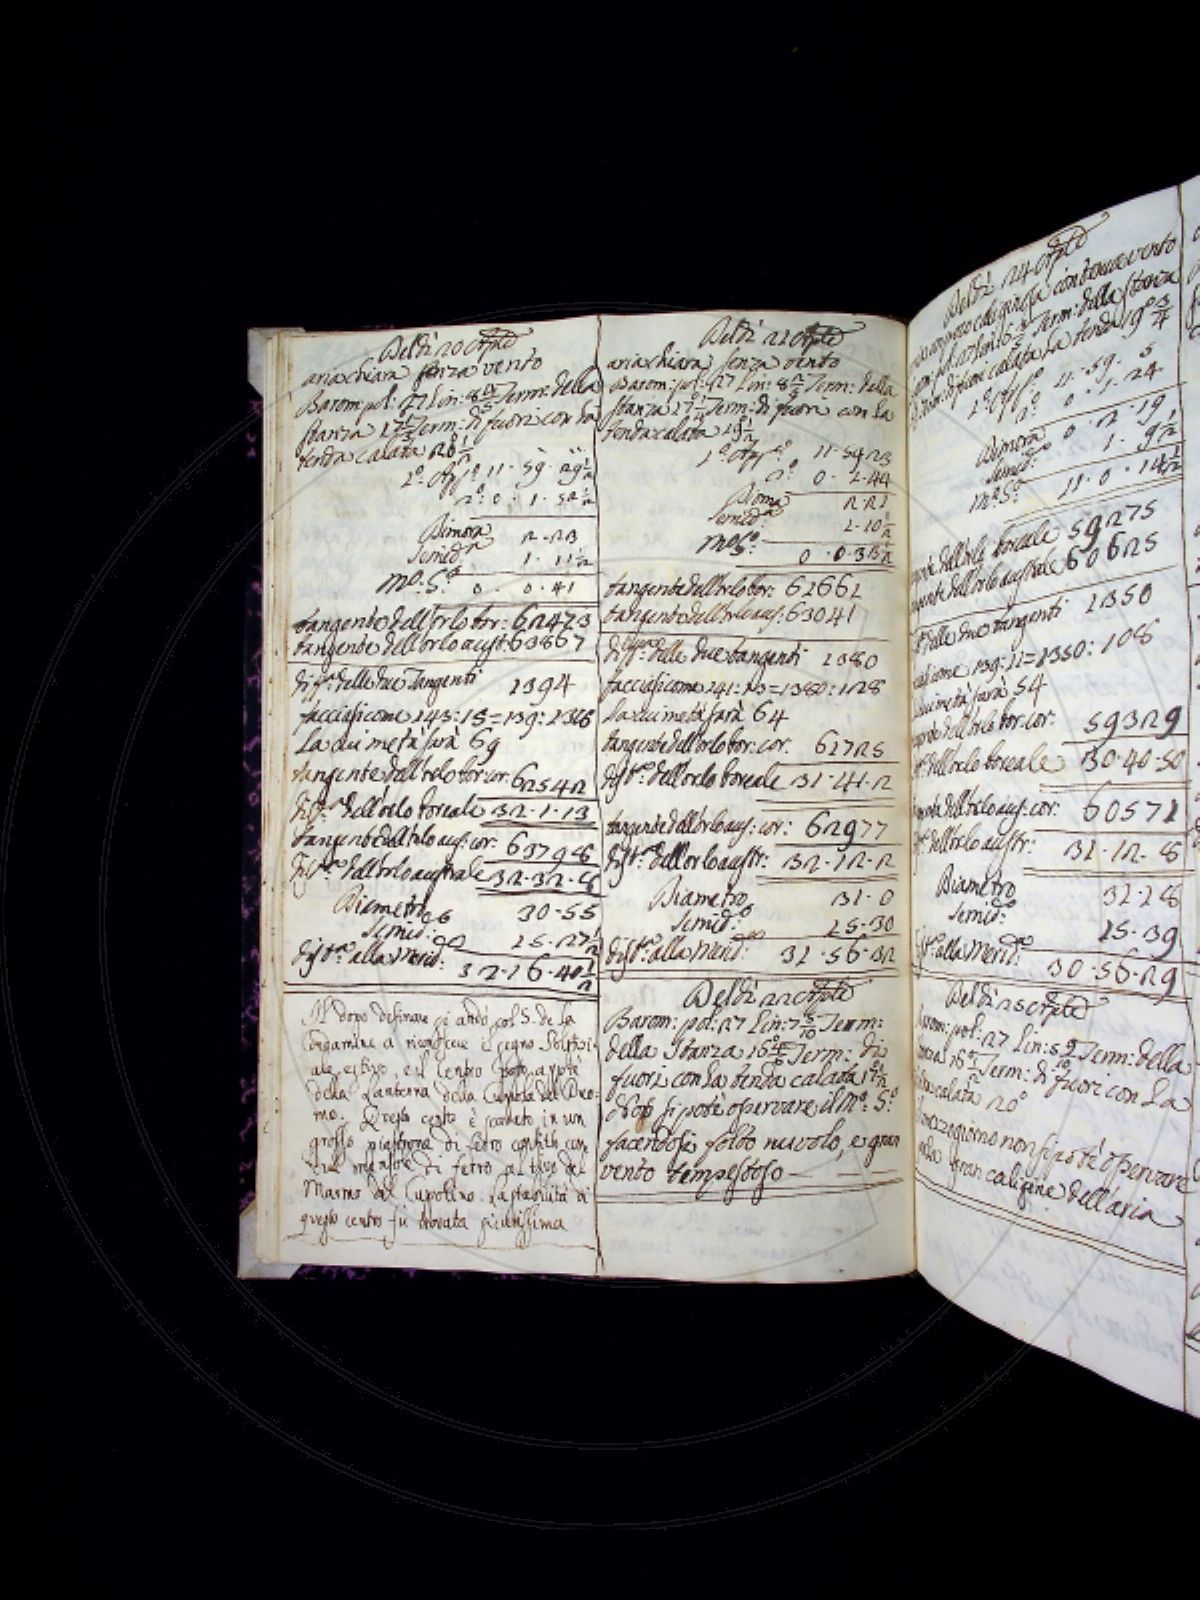 Del dì 20 Agosto
aria chiara senza vento
Barom: pol: 27 Lin: 8 Term: della
Stanza 17 Term: di fuori con la
tenda calata 20 1/2
1º App.º 11. 59. 29 1/2
2º: 0. 1. 52 1/2
Dimora 2. 23
Semid.ª 1. 11 1/2
M.º S.º 0. 0. 41
tangente dell'orlo bor: 62473
tangente dell'orlo aust: 63867
diff.ª delle due Tangenti 1394
facciasi come 143: 15 = 139: 138
La cui metà sarà 69
tangente dell'orlo bor: cor: 62542
dist.ª dell'orlo boreale 32. 1. 13
tangente dell'orlo aus: cor: 63798
dist.ª dell'orlo australe 32. 32. 8
Diametro 30. 55
Semid: 15. 27 1/2
dist.ª alla Merid: 32. 16. 40 1/2
M. dopo desinare si andò col S. de la
Congamine a riconoscere il segno Solstizi-
ale estivo, e il Centro sotto
della Lanterna della Cupola del Duo-
mo. Questo cento è scavato in un
grosso piastrone di ferro
di ferro al
Marmo del Cupolino. La stabilità di
questo centro fu trovata giustissima
Del dì 21 Agosto
aria chiara senza vento
Barom: pol: 27 Lin: 8 Term: della
Stanza 17 Term: di fuori con la
tenda calata 19 1/2
1º App.º 11. 54. 23
2º: 0. 1. 44
Dimora 2. 21
Semid.ª 1. 10 1/2
M.º S.º 0. 0. 33 1/2
tangente dell'orlo bor: 61661
tangente dell'orlo aus: 63041
diff.ª delle due tangenti 1380
facciasi come 141: 13 = 1380: 128
la cui metà sarà 64
tangente dell'orlo bor: cor: 61725
dist.ª dell'orlo boreale 31. 41. 2
tangente dell'orlo aus: cor: 62977
dist.ª dell'orlo austr: 32. 12. 2
Diametro 31. 0
Semid.º 15. 30
dist.ª alla Merid: 31. 56. 32
Del dì 22 Agosto
Barom: pol: 27 Lin: 7 5/10 Term:
della Stanza 16 Term: di
fuori con la tenda calata 17 1/2
si potè osservare il M.º S.º
facendosi folto nuvolo, e gran
vento tempestoso
Del dì 24 Agosto
caliginosa con tenue vento
Term: della Stanza
calata la tenda 19 3/4
1º App.º 11. 59. 5
2º: 0. 1. 24
Dimora 0. 2. 19
Semid: 1. 9 1/2
M.º S.º 11. 0. 14 1/2
dell'orlo boreale 59275
dell'orlo australe 60625
delle due tangenti 1350
come 139: 11 = 1350: 108
cui metà sarà 54
dell'orlo bor: cor: 59329
dell'orlo boreale 30. 40. 50
dell'orlo aus: cor: 60571
dell'orlo austr: 31. 12. 8
Diametro 31. 18
Semid.º 15. 39
alla Merid: 30. 56. 29
Del dì 25 Agosto
Barom: pol: 27 Lin: 5 9/10 Term: della
16 Term: di fuori con la
calata 20º
mezzogiorno non si potè osservare
gran caligine dell'aria